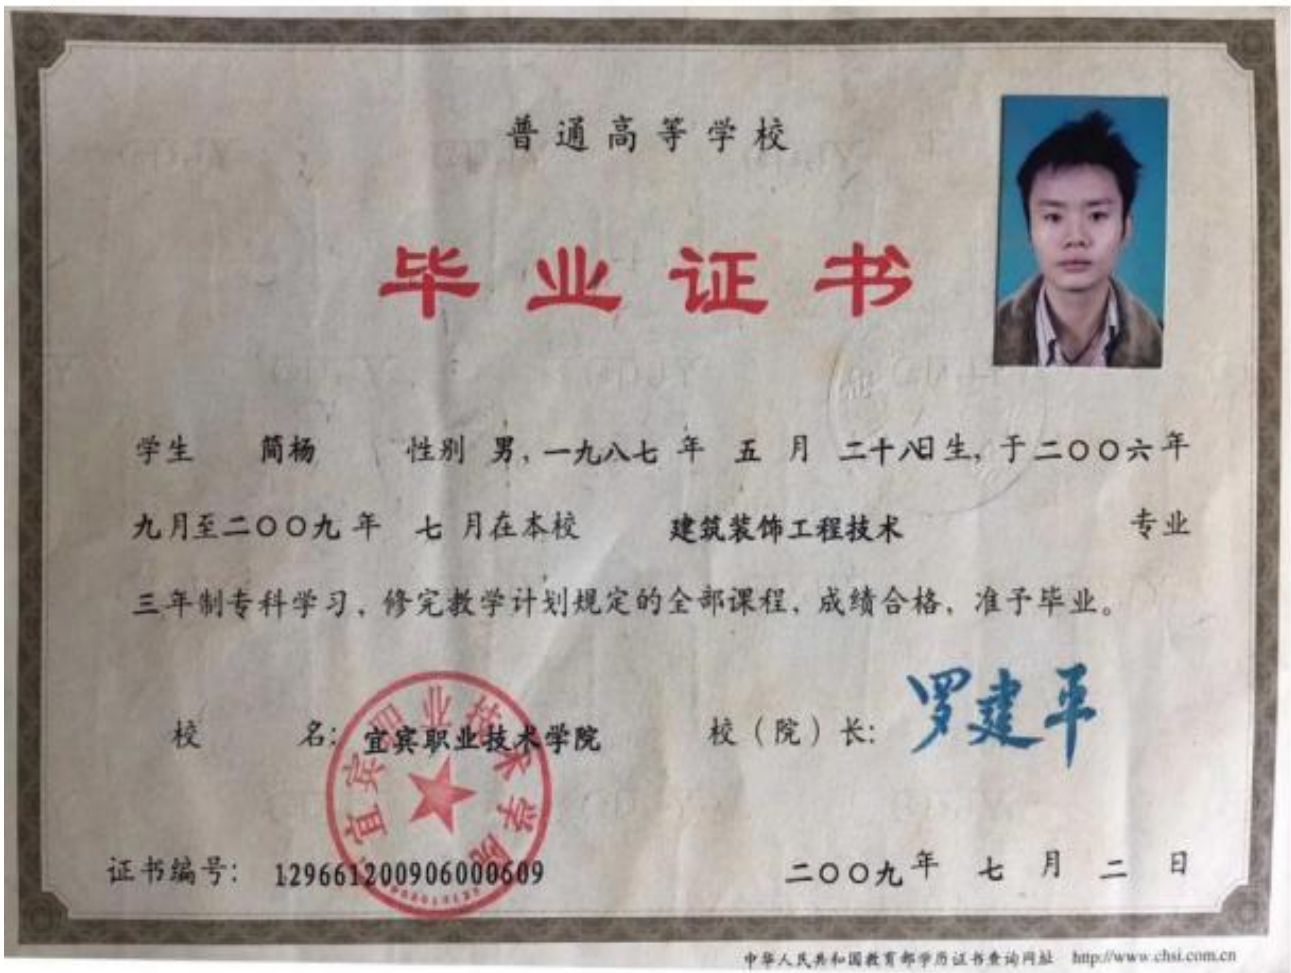 普通高等学校
毕业证书
学生 简杨 性别 男，一九八七 年 五 月 二十八日生，于二〇〇六年
九月至二〇〇九年 七 月在本校 建筑装饰工程技术 专业
三年制专科学习，修完教学计划规定的全部课程，成绩合格，准予毕业。
校 名：宜宾职业技术学院 校（院）长：罗建平
宜宾职业技术学院
证书编号：129661200906000609 二〇〇九年 七 月 二 日
中华人民共和国教育部学历证书查询网址 http://www.chsi.com.cn